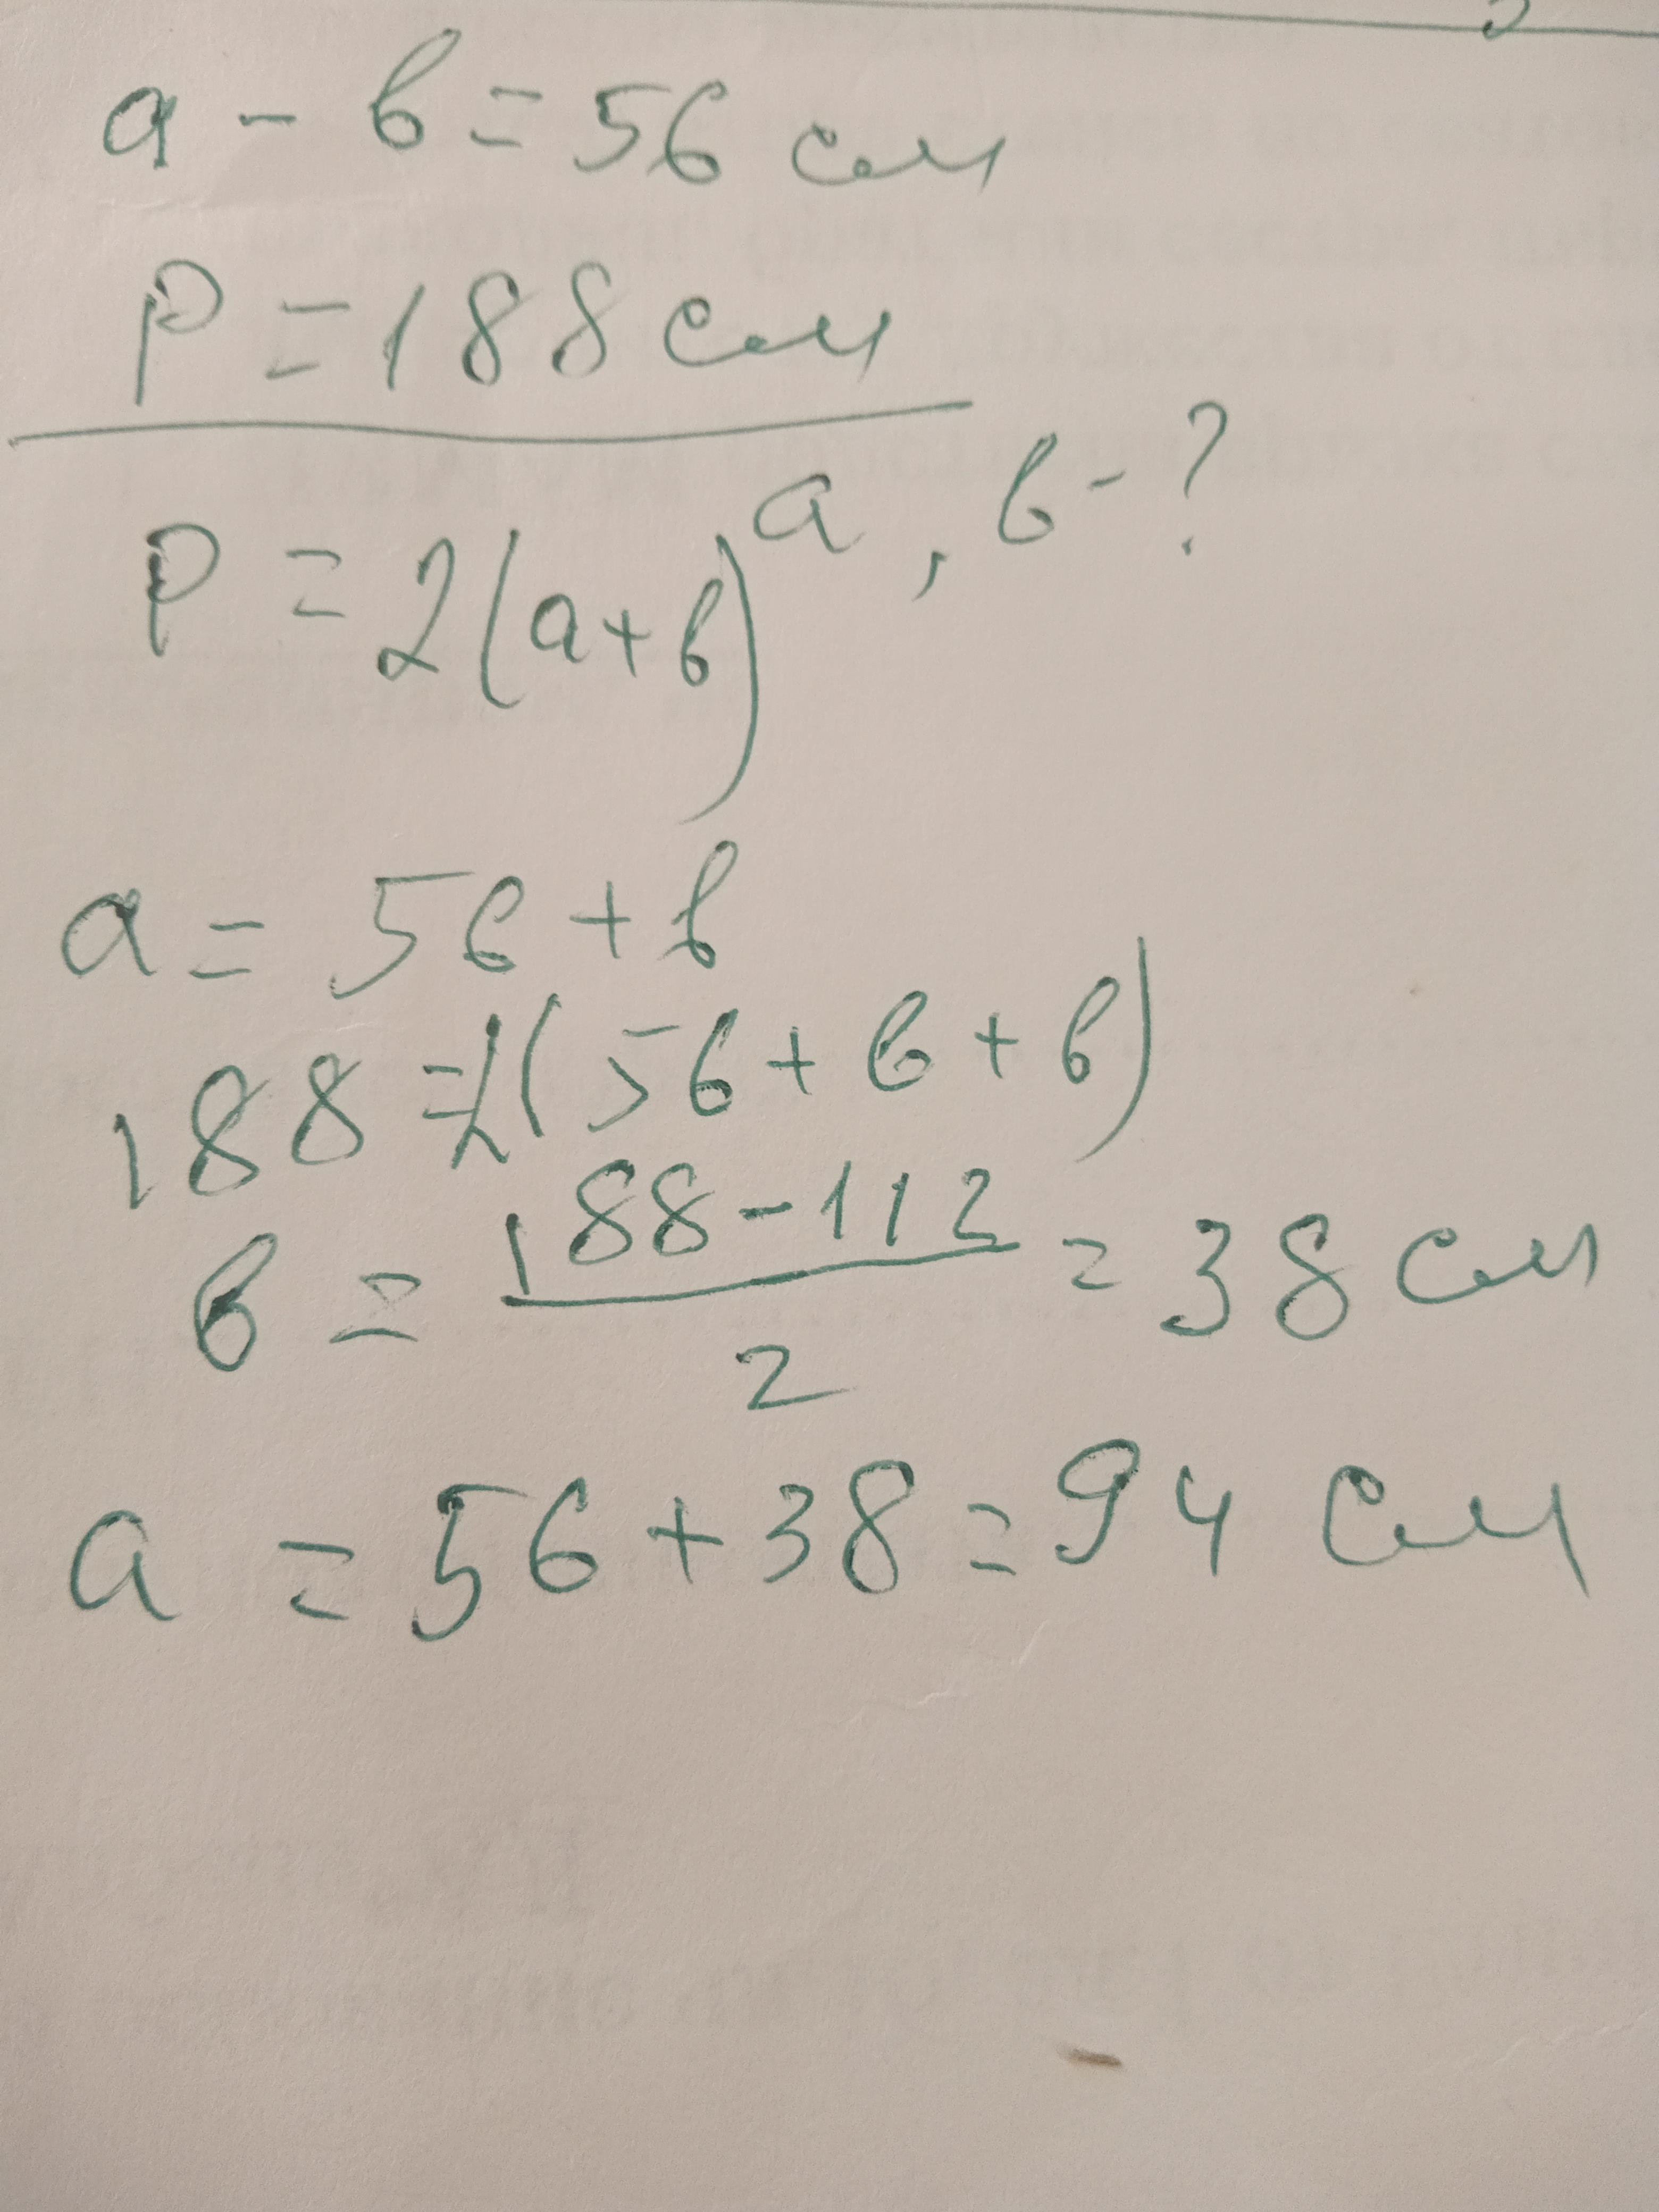 a - в = 56 см
P = 188 см
a, в - ?
P = 2(a+в)
a = 56 + в
188 = 2(56 + в + в)
в = (188 - 112)/2 = 38 см
a = 56 + 38 = 94 см